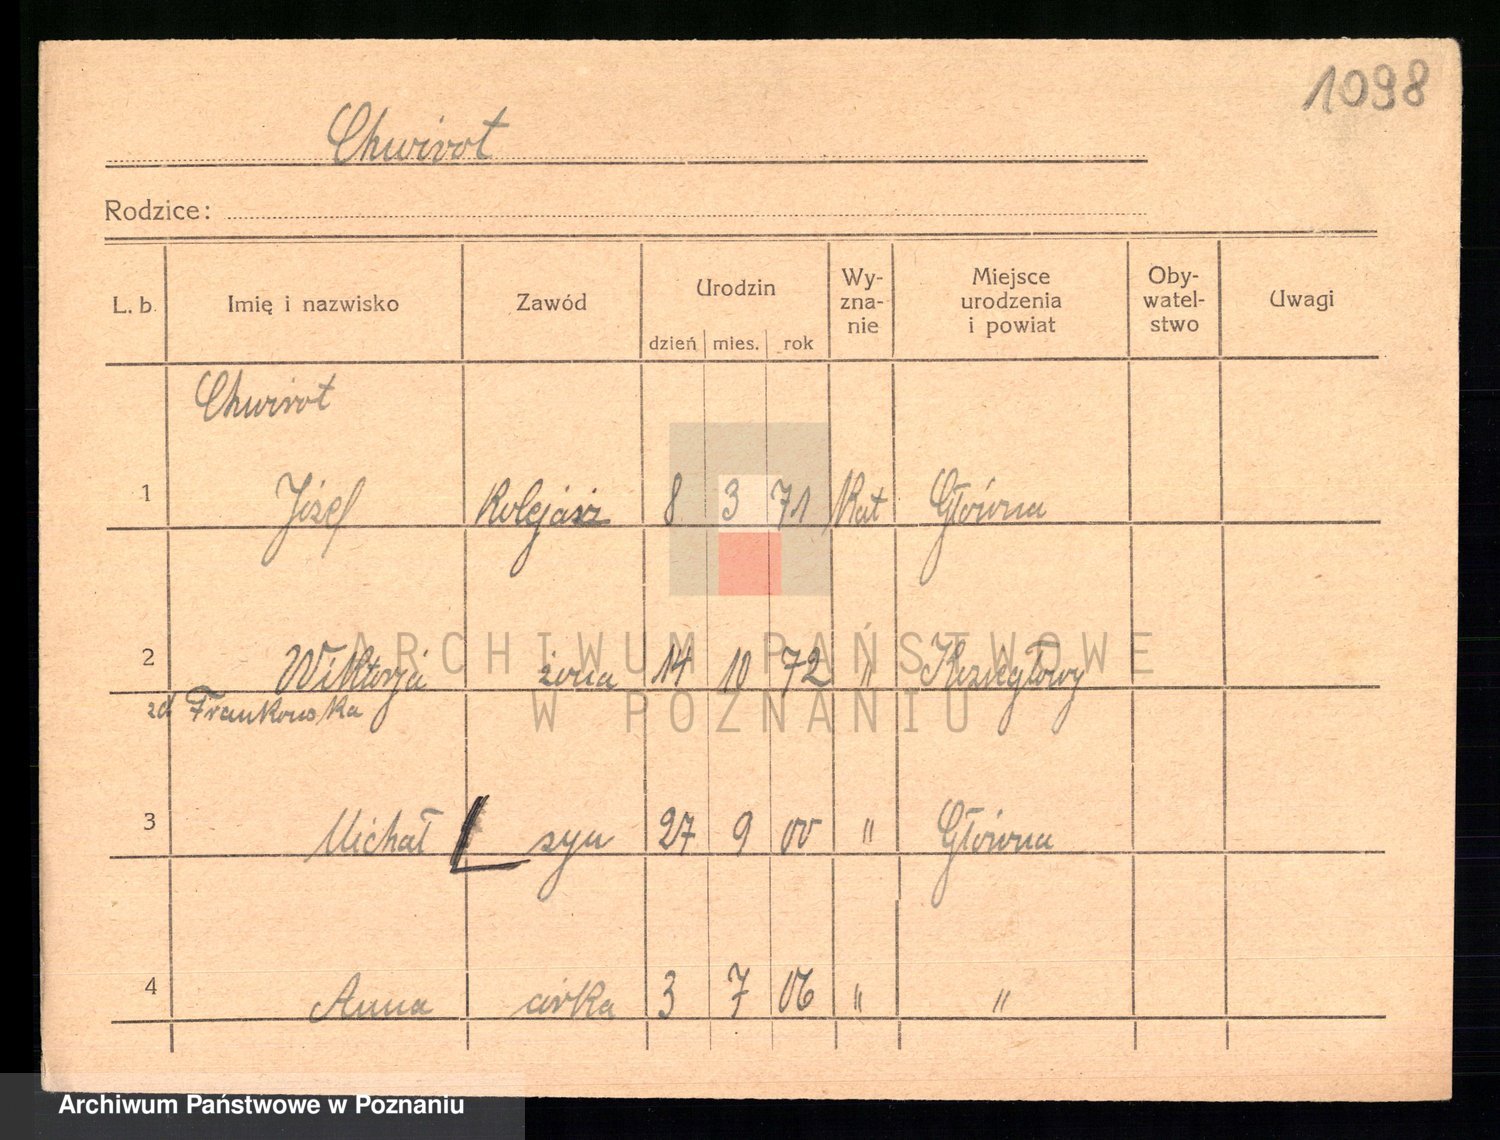 1098
Chwirot
Rodzice:
L. b. Imię i nazwisko Zawód Urodzin dzień mies. rok Wy-zna-nie Miejsce urodzenia i powiat Oby-watel-stwo Uwagi
Chwirot
1 Józef Kolejarz 8 3 71 Kat Główna
2 Wiktorja żona 14 10 72 " Koziegłowy
zd Frankowska
3 Michał syn 27 9 00 " Główna
4 Anna córka 3 7 06 " "
ARCHIWUM PAŃSTWOWE
W POZNANIU
Archiwum Państwowe w Poznaniu